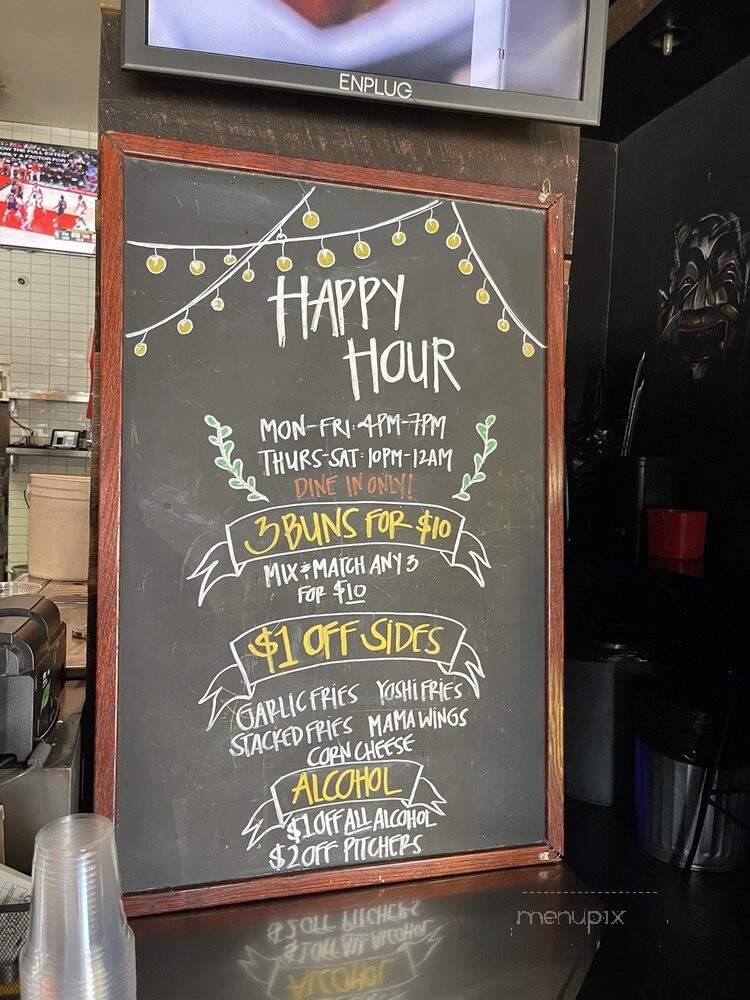 ENPLUG
OW THE FULL EXTENT
AINLY A FACTOR FOR
HAPPY
HOUR
MON-FRI: 4PM-7PM
THURS-SAT: 10PM-12AM
DINE IN ONLY!
3 BUNS FOR $10
MIX & MATCH ANY 3
FOR $10
$1 OFF SIDES
GARLIC FRIES YOSHI FRIES
STACKED FRIES MAMA WINGS
CORN CHEESE
ALCOHOL
$1 OFF ALL ALCOHOL
$2 OFF PITCHERS
menupix